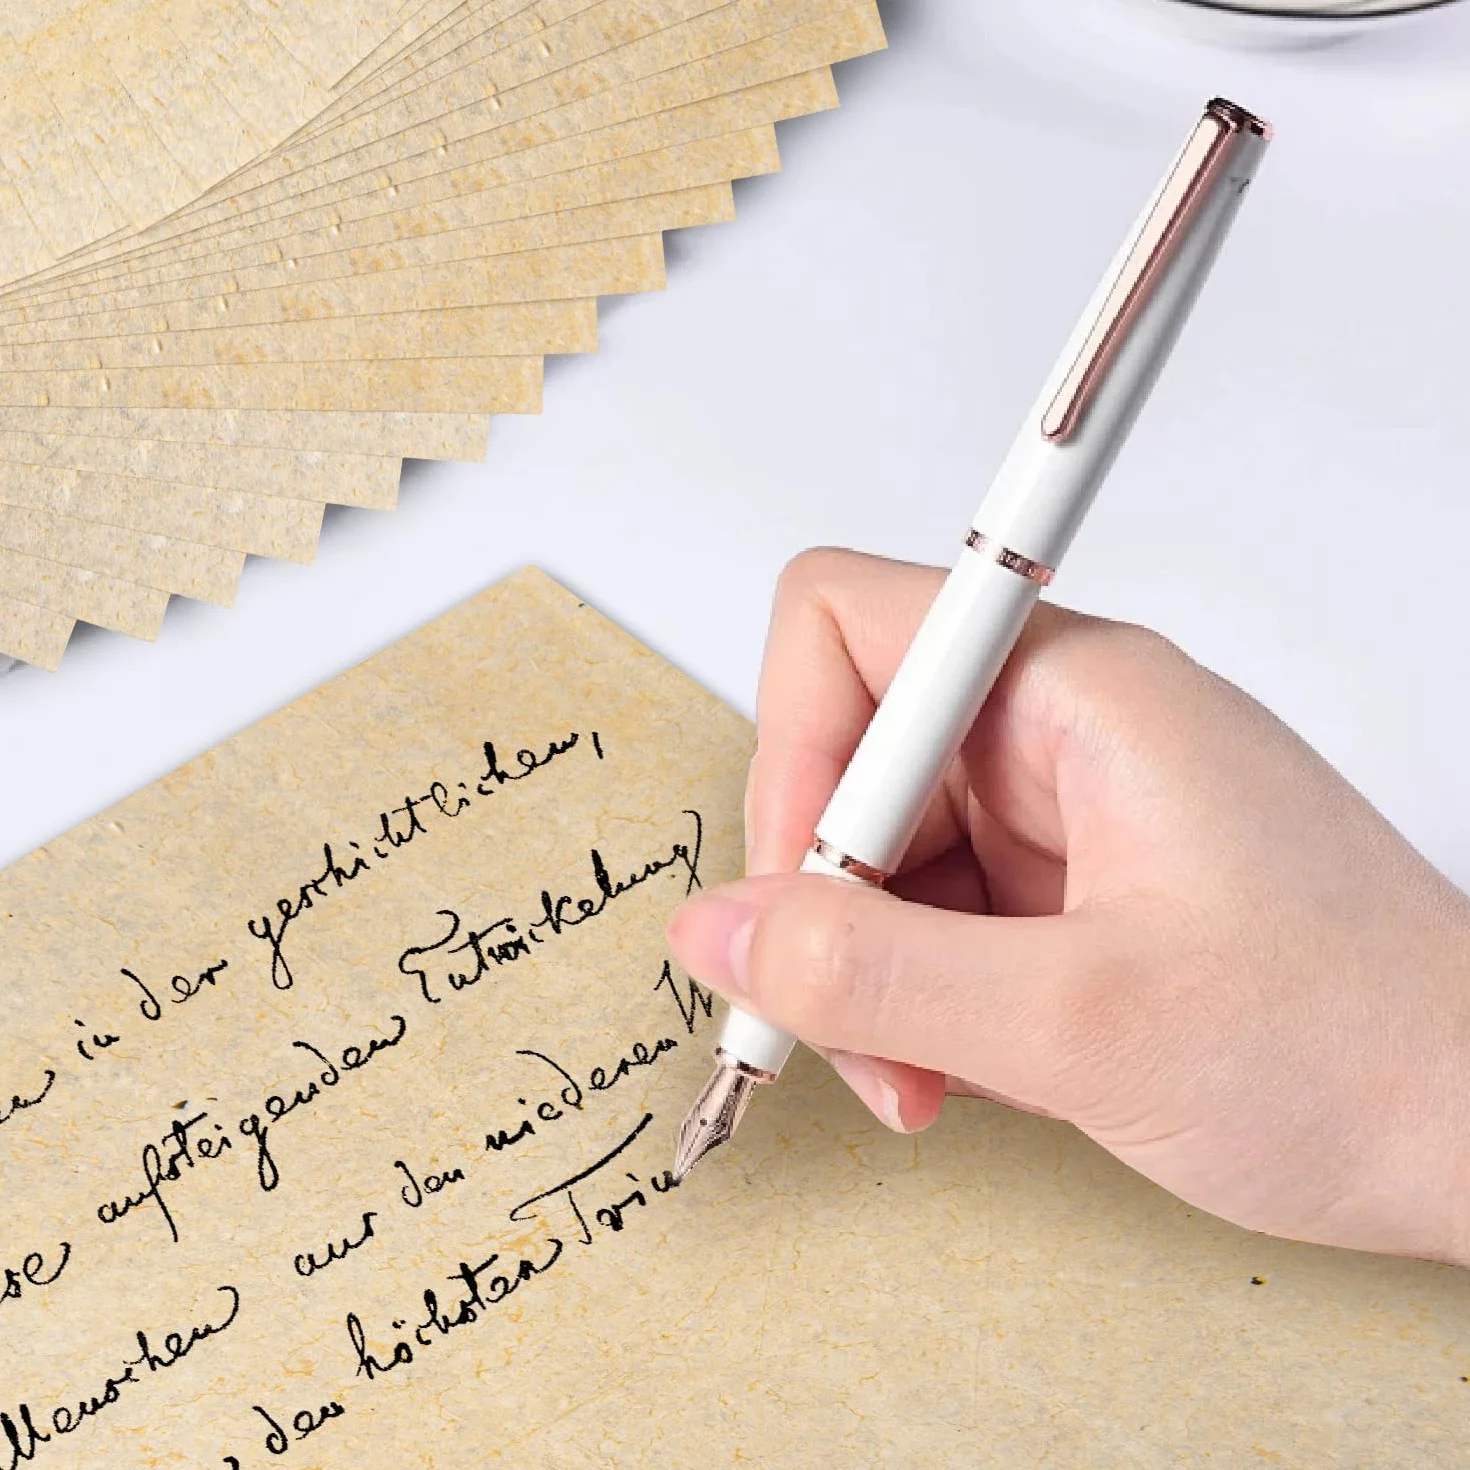 in der geschichtlichen,
aufsteigenden Entwickelung
Menschen aus den niederen
den höchsten Triu